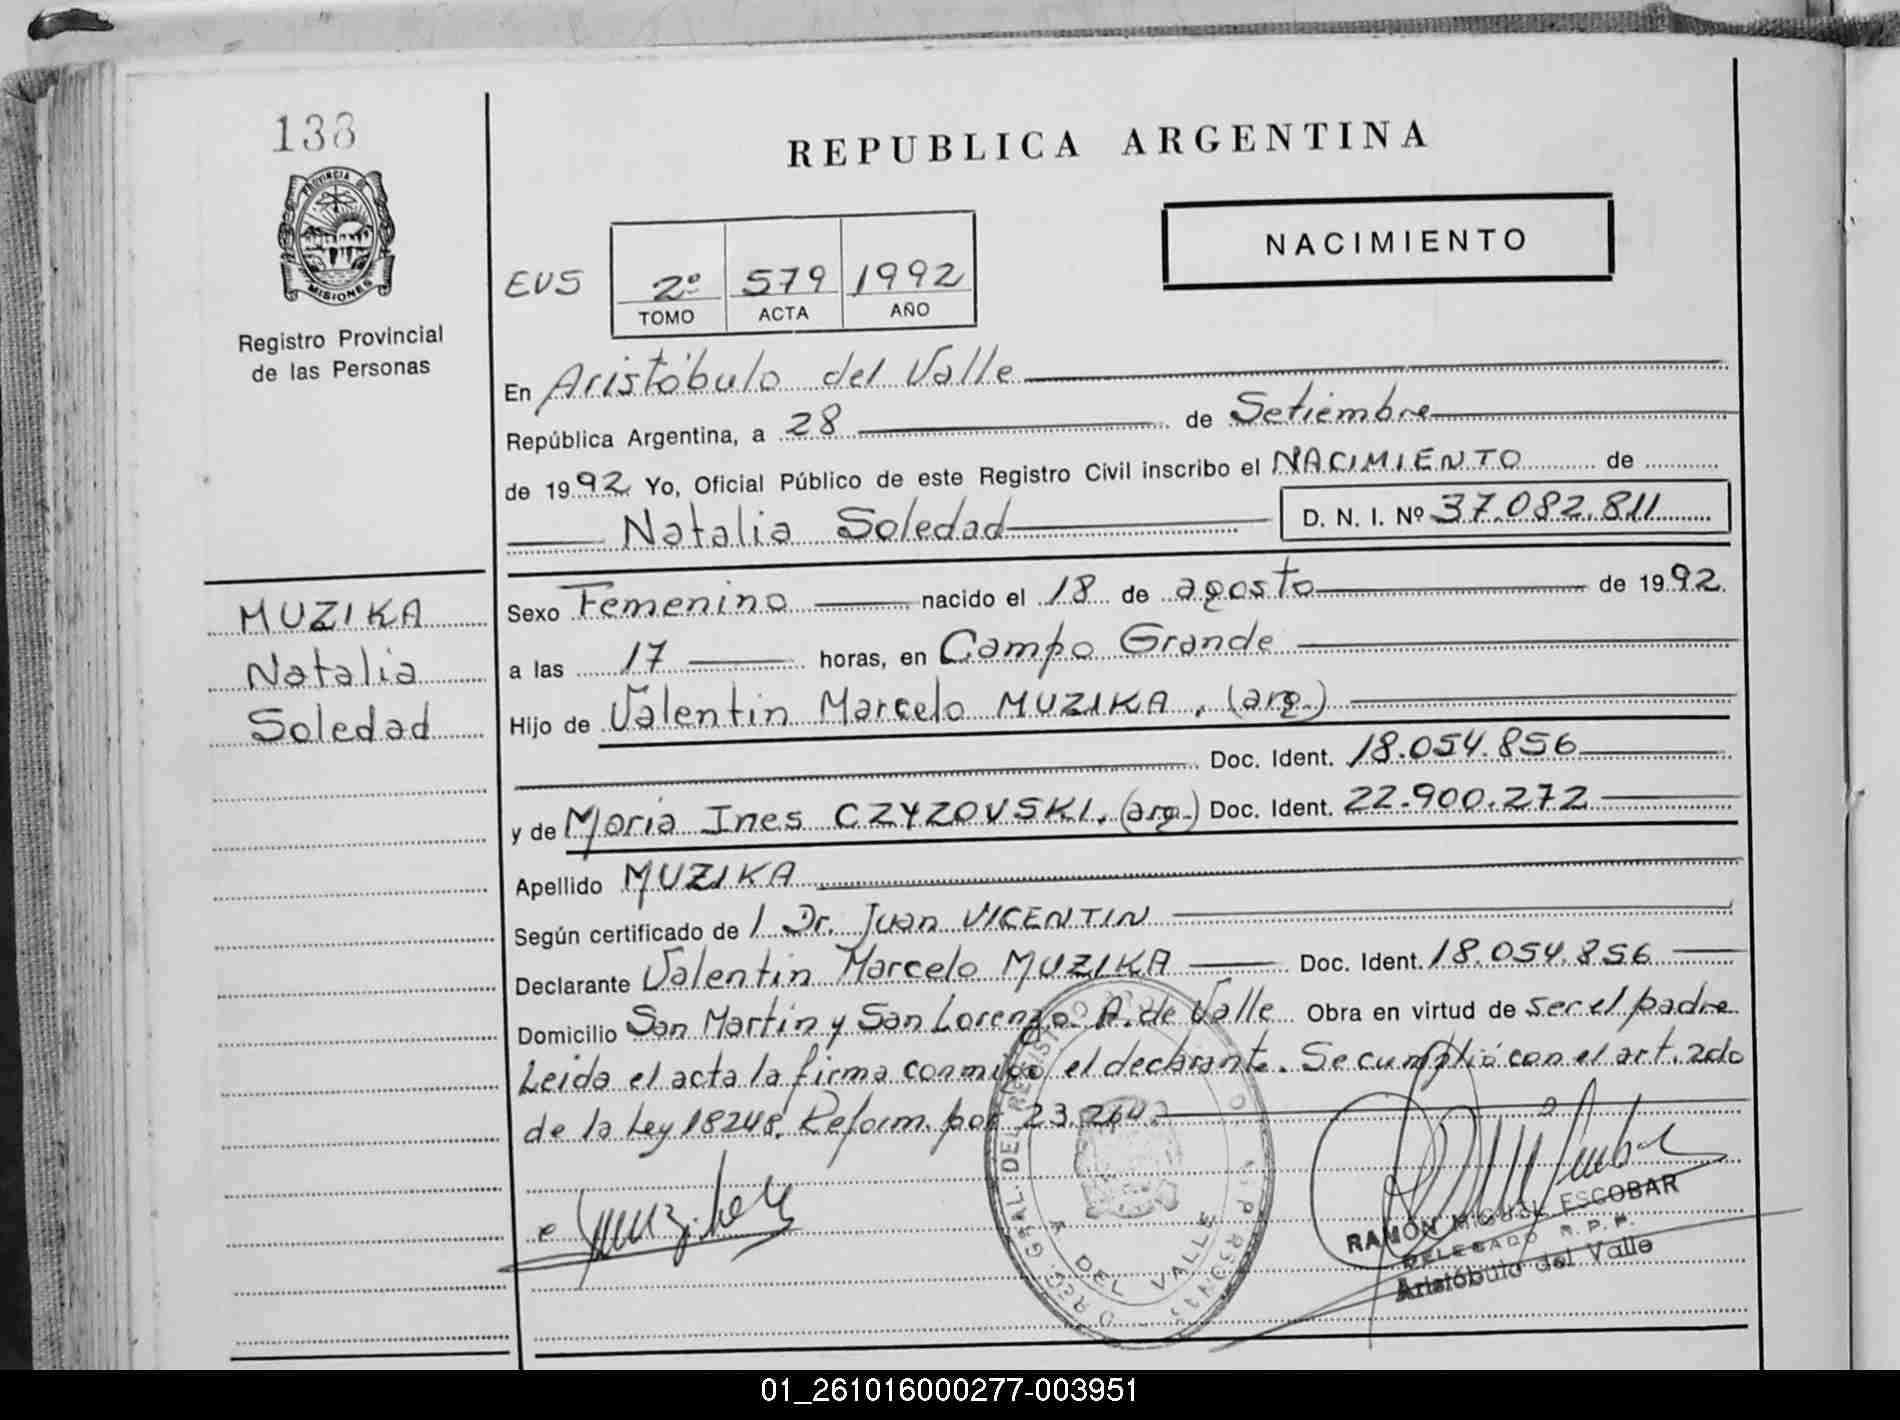 138
PROVINCIA DE
MISIONES
Registro Provincial
de las Personas
MUZIKA
Natalia
Soledad
REPUBLICA ARGENTINA
NACIMIENTO
EVS 2º 579 1992
TOMO ACTA AÑO
En Aristóbulo del Valle
República Argentina, a 28 de Setiembre
de 1992 Yo, Oficial Público de este Registro Civil inscribo el NACIMIENTO de
Natalia Soledad D. N. I. Nº 37.082.811
Sexo Femenino nacido el 18 de agosto de 1992.
a las 17 horas, en Campo Grande
Hijo de Valentin Marcelo MUZIKA, (arg.)
Doc. Ident. 18.054.856
y de Maria Ines CZYZOVSKI, (arg.) Doc. Ident. 22.900.272
Apellido MUZIKA
Según certificado de l Dr. Juan VICENTIN
Declarante Valentin Marcelo MUZIKA Doc. Ident. 18.054.856
Domicilio San Martin y San Lorenzo. A. de Valle Obra en virtud de ser el padre
Leida el acta la firma conmigo el declarante. Se cumplió con el art. 2do
de la Ley 18248. Reform. por 23.264.
A DEL VALLE
RAMÓN MIGUEL ESCOBAR
DELEGADO R. P. P.
Aristóbulo del Valle
01_261016000277-003951